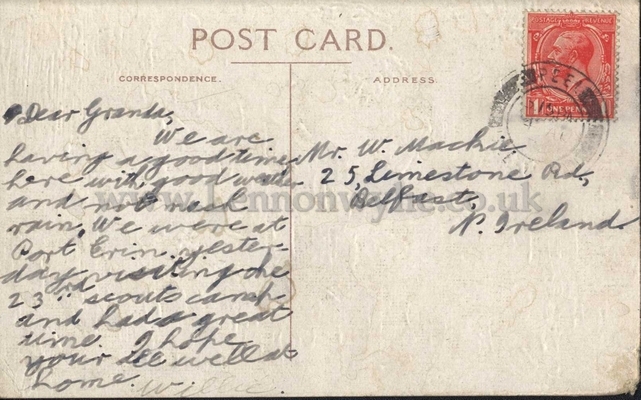 POST CARD.
CORRESPONDENCE.
ADDRESS.
POSTAGE REVENUE
ONE PENNY
PEEL
Dear Granda,
We are
having a good time
here with good weather
and not much
rain. We were at
Port Erin yester-
day visiting the
23rd scouts camp
and had a great
time. I hope
your all well at
home. Willie.
Mr. W. Mackie
25, Limestone Rd,
Belfast,
N. Ireland
www.lennonwylie.co.uk